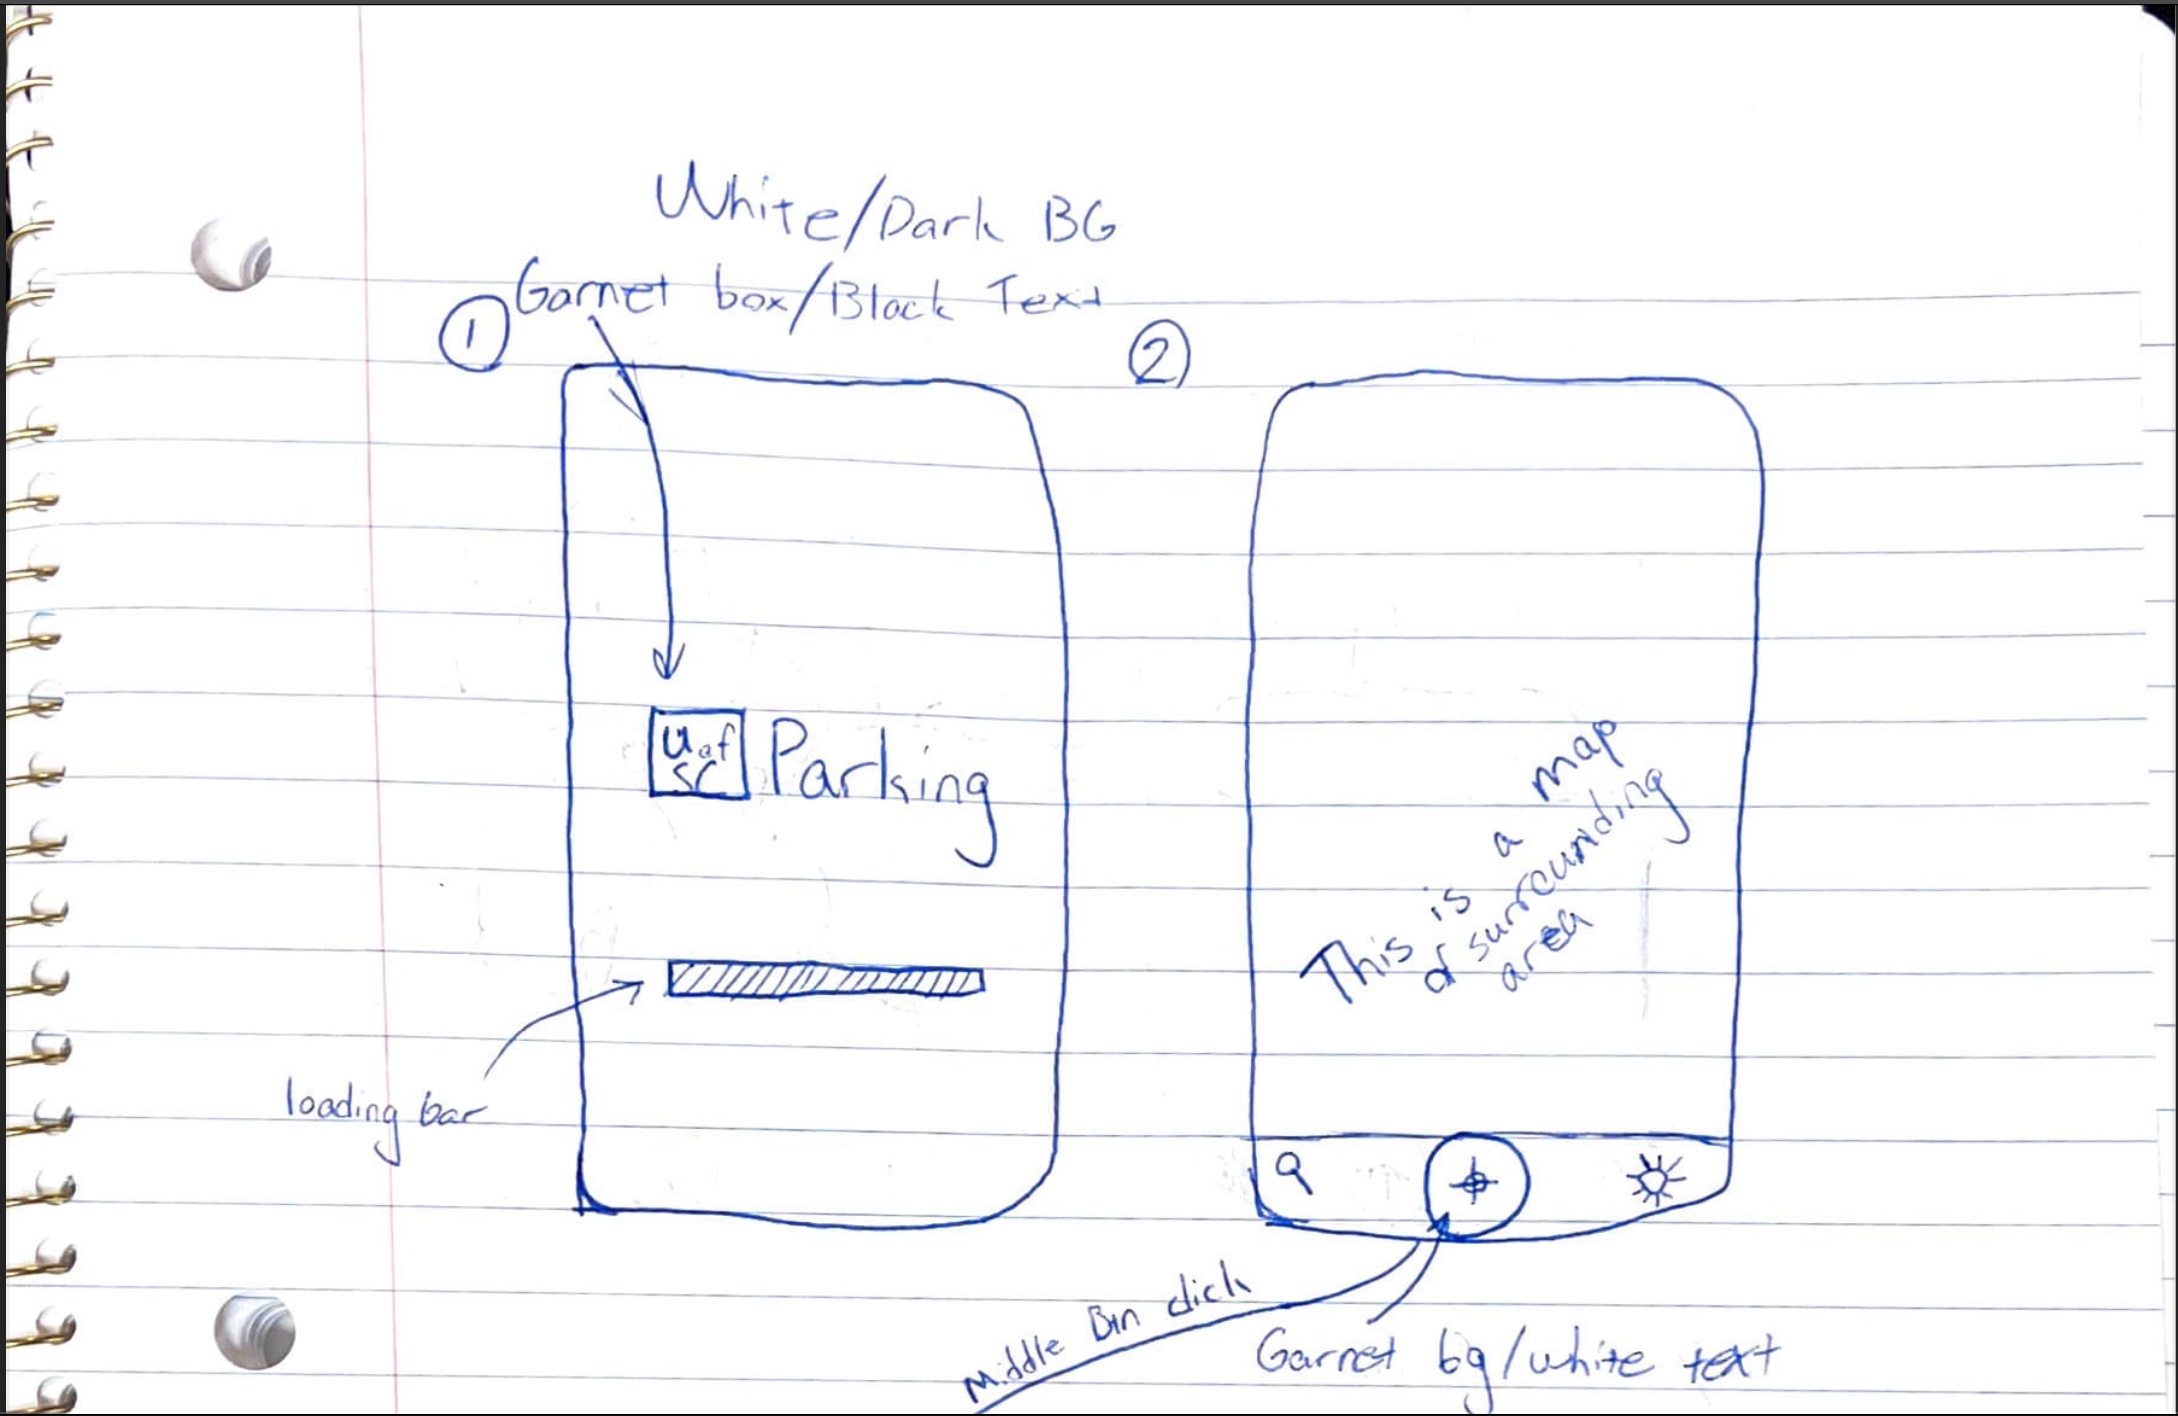 White/Dark BG
Garnet box/Black Text
1
2
U of
SC
Parking
This is a map
of surrounding
area
loading bar
Middle Btn click
Garnet bg/white text